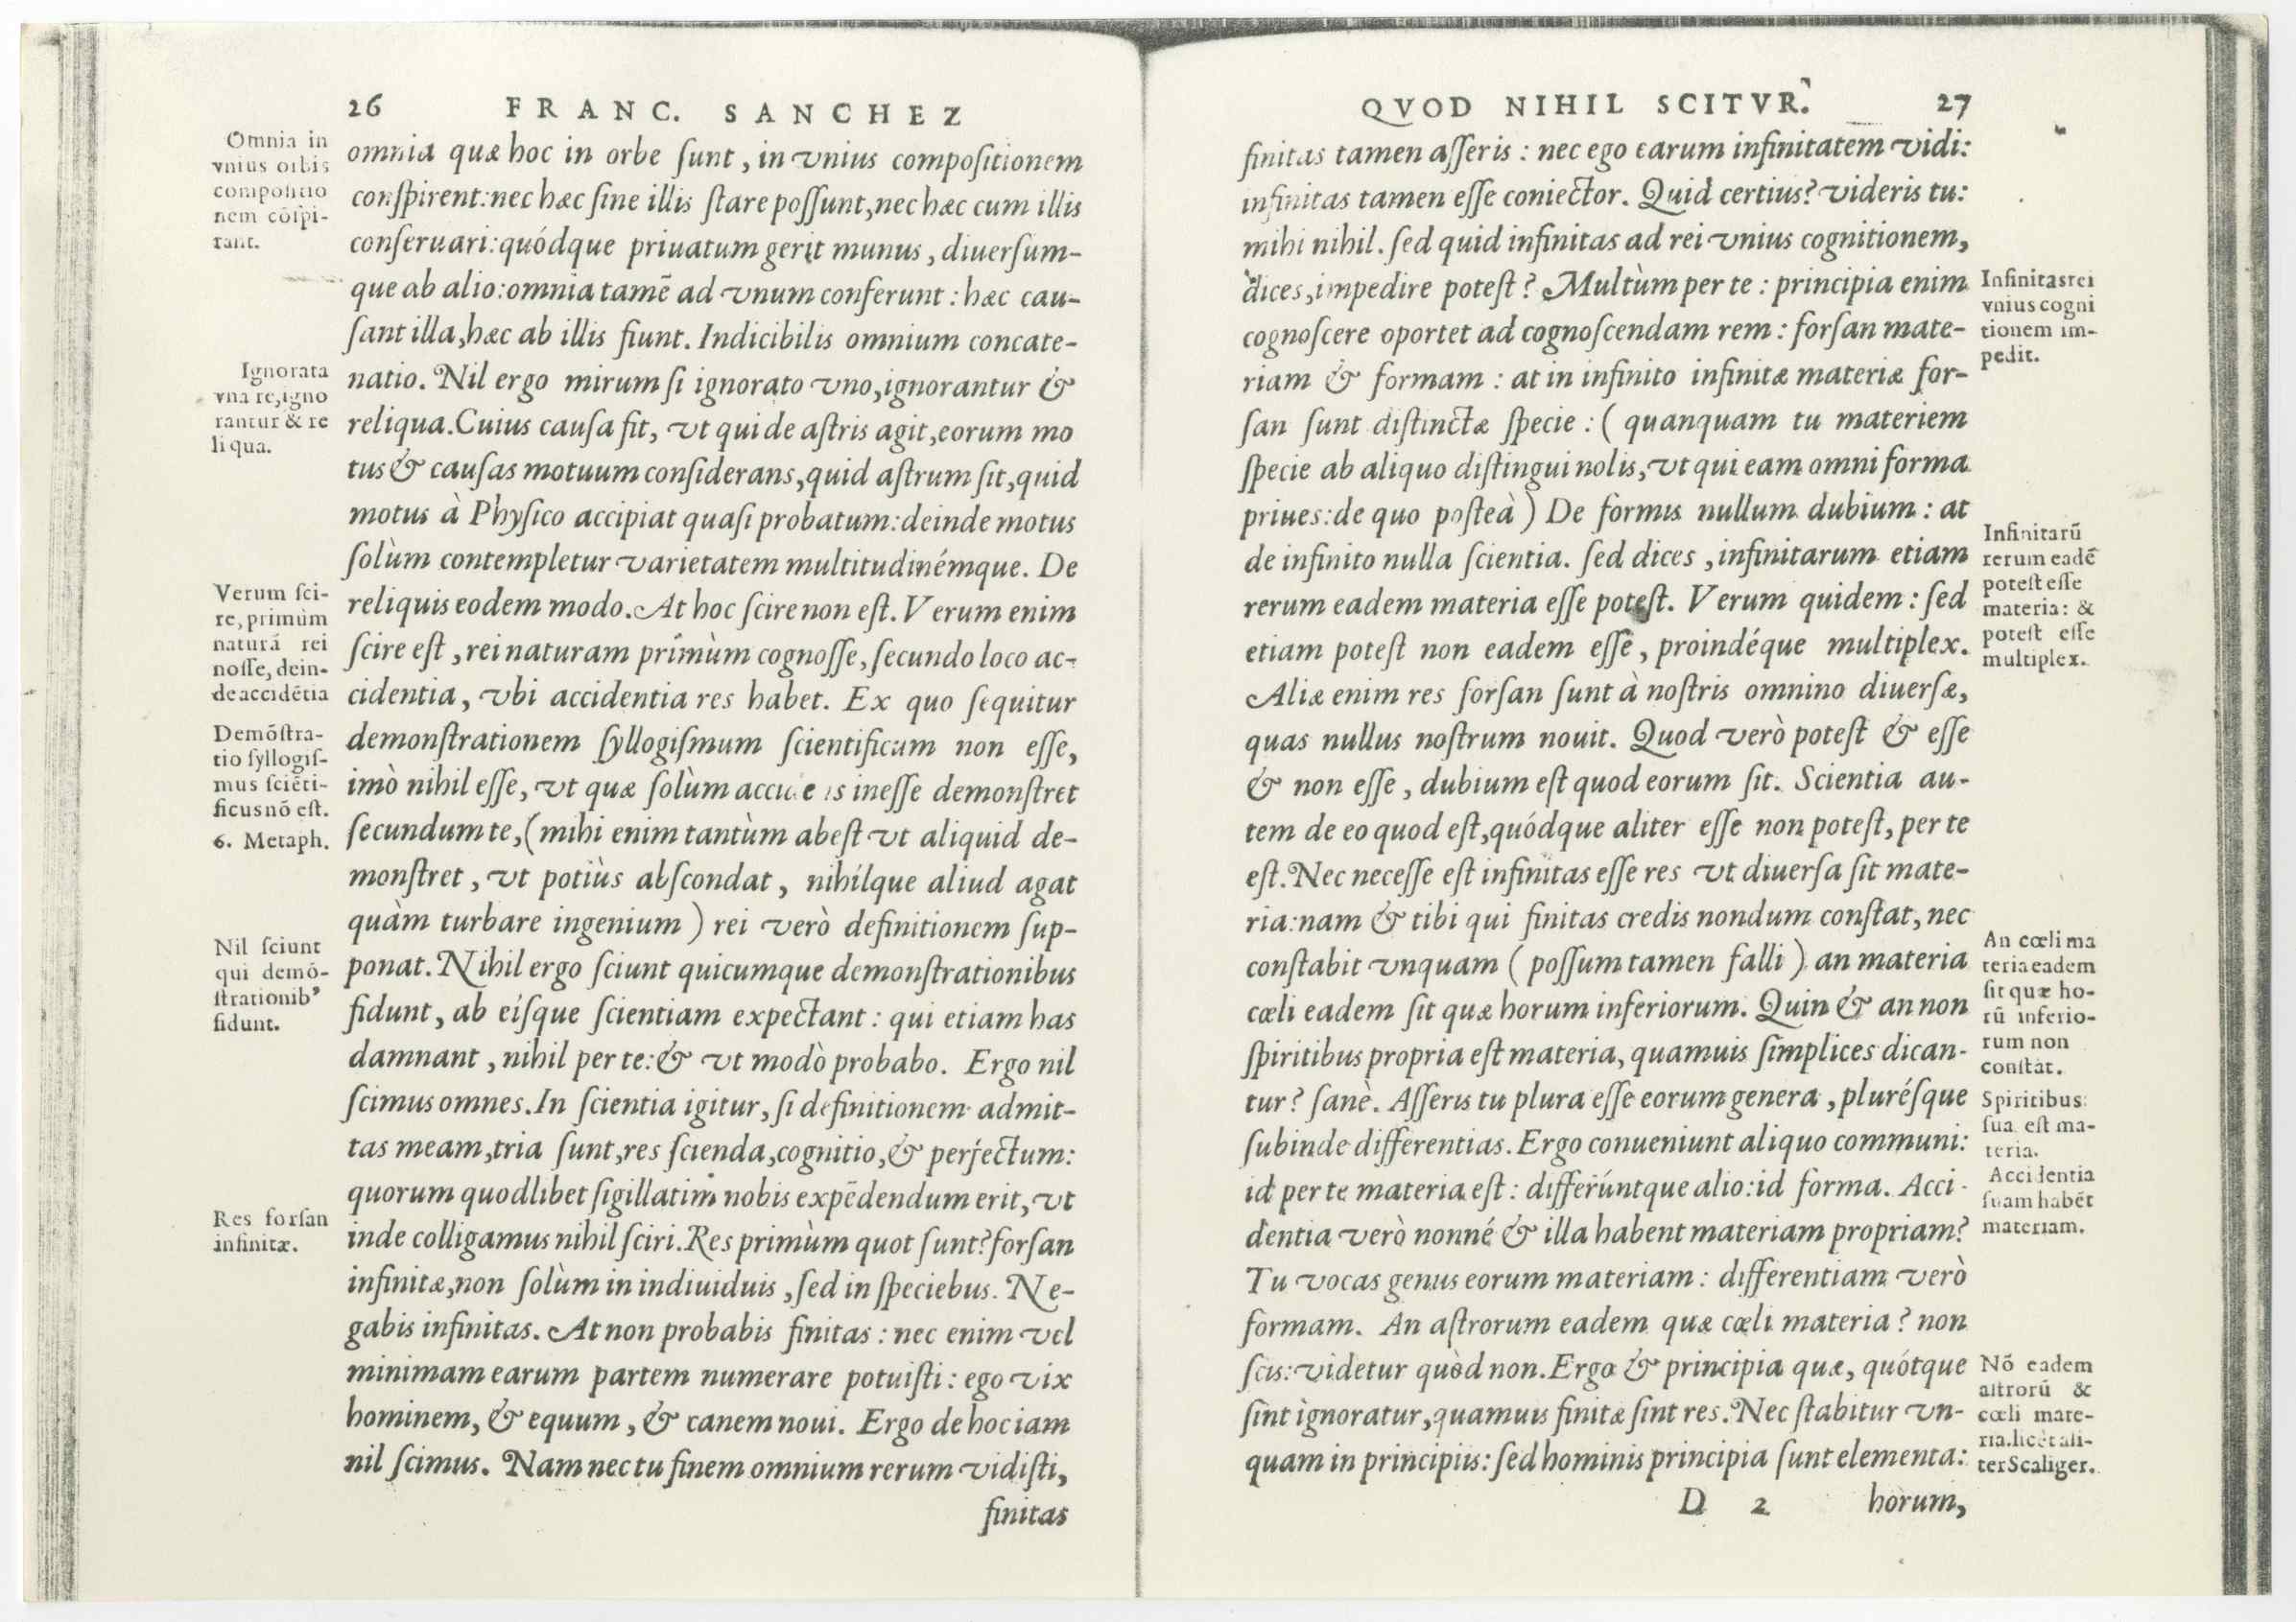 26 FRANC. SANCHEZ
Omnia in
vnius orbis
compositio
nem cõſpi-
rant.
Ignorata
vna re, igno
rantur & re
liqua.
Verum ſci-
re, primùm
naturã rei
noſſe, dein-
de accidẽtia
Demõſtra-
tio ſyllogiſ-
mus ſciẽti-
ficus nõ eſt.
6. Metaph.
Nil ſciunt
qui demõ-
ſtrationib⁹
fidunt.
Res forſan
infinitæ.
omnia quæ hoc in orbe ſunt, in vnius compoſitionem
conſpirent: nec hæc ſine illis ſtare poſſunt, nec hæc cum illis
conſeruari: quódque priuatum gerit munus, diuerſum-
que ab alio: omnia tamẽ ad vnum conferunt: hæc cau-
ſant illa, hæc ab illis fiunt. Indicibilis omnium concate-
natio. Nil ergo mirum ſi ignorato vno, ignorantur &
reliqua. Cuius cauſa fit, vt qui de aſtris agit, eorum mo
tus & cauſas motuum conſiderans, quid aſtrum ſit, quid
motus à Phyſico accipiat quaſi probatum: deinde motus
ſolùm contempletur varietatem multitudinémque. De
reliquis eodem modo. At hoc ſcire non eſt. Verum enim
ſcire eſt, rei naturam primùm cognoſſe, ſecundo loco ac-
cidentia, vbi accidentia res habet. Ex quo ſequitur
demonſtrationem ſyllogiſmum ſcientificum non eſſe,
imò nihil eſſe, vt quæ ſolùm ineſſe demonſtret
ſecundum te, (mihi enim tantùm abeſt vt aliquid de-
monſtret, vt potiùs abſcondat, nihílque aliud agat
quàm turbare ingenium) rei verò definitionem ſup-
ponat. Nihil ergo ſciunt quicumque demonſtrationibus
fidunt, ab eíſque ſcientiam expectant: qui etiam has
damnant, nihil per te: & vt modò probabo. Ergo nil
ſcimus omnes. In ſcientia igitur, ſi definitionem admit-
tas meam, tria ſunt, res ſcienda, cognitio, & perfectum:
quorum quodlibet ſigillatim nobis expẽdendum erit, vt
inde colligamus nihil ſciri. Res primùm quot ſunt? forſan
infinitæ, non ſolùm in indiuiduis, ſed in ſpeciebus. Ne-
gabis infinitas. At non probabis finitas: nec enim vel
minimam earum partem numerare potuiſti: ego vix
hominem, & equum, & canem noui. Ergo de hoc iam
nil ſcimus. Nam nec tu finem omnium rerum vidiſti,
finitas
QVOD NIHIL SCITVR. 27
finitas tamen aſſeris: nec ego earum infinitatem vidi:
infinitas tamen eſſe coniector. Quid certius? videris tu:
mihi nihil. ſed quid infinitas ad rei vnius cognitionem,
dices, impedire poteſt? Multùm per te: principia enim
cognoſcere oportet ad cognoſcendam rem: forſan mate-
riam & formam: at in infinito infinitæ materiæ for-
ſan ſunt diſtinctæ ſpecie: (quanquam tu materiem
ſpecie ab aliquo diſtingui nolis, vt qui eam omni forma
priues: de quo poſteà) De formis nullum dubium: at
de infinito nulla ſcientia. ſed dices, infinitarum etiam
rerum eadem materia eſſe poteſt. Verum quidem: ſed
etiam poteſt non eadem eſſe, proindéque multiplex.
Aliæ enim res forſan ſunt à noſtris omnino diuerſæ,
quas nullus noſtrum nouit. Quod verò poteſt & eſſe
& non eſſe, dubium eſt quod eorum ſit. Scientia au-
tem de eo quod eſt, quódque aliter eſſe non poteſt, per te
eſt. Nec neceſſe eſt infinitas eſſe res vt diuerſa ſit mate-
ria: nam & tibi qui finitas credis nondum conſtat, nec
conſtabit vnquam (poſſum tamen falli) an materia
cœli eadem ſit quæ horum inferiorum. Quin & an non
ſpiritibus propria eſt materia, quamuis ſimplices dican-
tur? ſanè. Aſſeris tu plura eſſe eorum genera, pluréſque
ſubinde differentias. Ergo conueniunt aliquo communi:
id per te materia eſt: differúntque alio: id forma. Acci-
dentia verò nonné & illa habent materiam propriam?
Tu vocas genus eorum materiam: differentiam verò
formam. An aſtrorum eadem quæ cœli materia? non
ſcis: videtur quòd non. Ergo & principia quæ, quótque
ſint ignoratur, quamuis finitæ ſint res. Nec ſtabitur vn-
quam in principiis: ſed hominis principia ſunt elementa:
D 2 horum,
Infinitas rei
vnius cogni
tionem im-
pedit.
Infinitarũ
rerum eadẽ
poteſt eſſe
materia: &
poteſt eſſe
multiplex.
An cœli ma
teria eadem
ſit quæ ho-
rũ inferio-
rum non
conſtat.
Spiritibus
ſua eſt ma-
teria.
Accidentia
ſuam habẽt
materiam.
Nõ eadem
aſtrorũ &
cœli mate-
ria. licèt ali-
ter Scaliger.